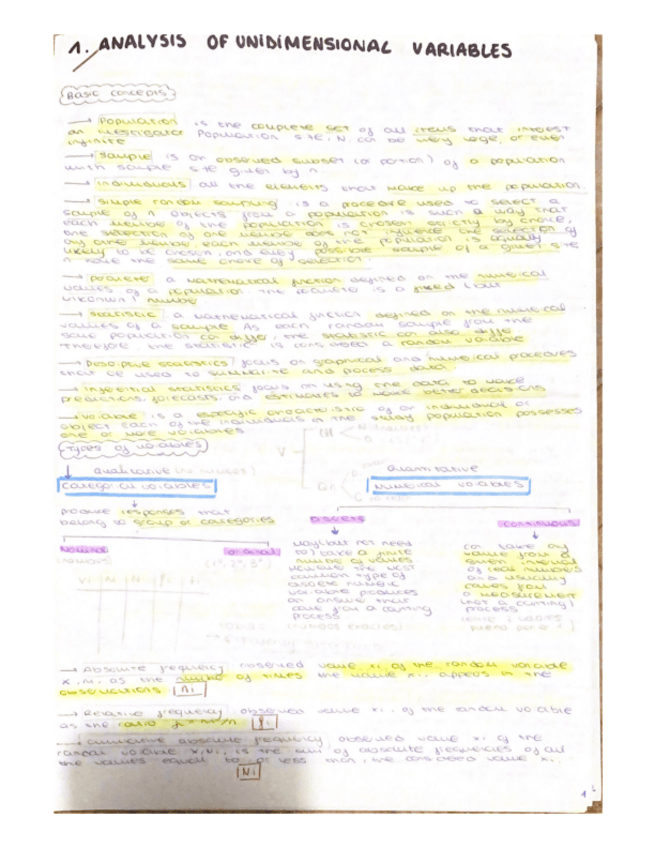 1. ANALYSIS OF UNIDIMENSIONAL VARIABLES
Basic concepts
→ Population is the complete set of all items that interest
an investigator Population size, N, can be very large, or even
infinite
→ Sample is an observed subset (or portion) of a population
with sample size given by n.
→ individuals all the elements that make up the population.
→ simple random sampling is a procedure used to select a
sample of n objects from a population is such a way that
each member of the population is chosen strictly by chance,
the selection of one member does not influence the selection of
any other member, each member of the population is equally
likely to be chosen, and every possible sample of a given size
n have the same chance of selection.
→ parameter a mathematical function defined on the numerical
values of a population The parameter is a fixed (but
unknown) number
→ statistic a mathematical function defined on the numerical
values of a sample. As each random sample from the
same population can differ, the statistic can also differ
therefore the statistic is considered a random variable
→ Descriptive statistics focus on graphical and numerical procedures
that are used to summarize and process data.
→ inferential statistics focus on using the data to make
predictions, forecasts, and estimates to make better decisions
→ variable is a specific characteristic of an individual or
object each of the individuals in the study population possesses
one or more variables
Types of variables
qualitative (no numbers) quantitative
categorical variables Numerical variables
produce responses that
belong to group or categories
Discrete continuous
Nominal ordinal
(nombres) (1º, 2º, 3º)
may (but not need
to) have a finite
number of values
However the most
common type of
discrete numeric
variable produces
an answer that
come from a counting
process
can take any
value from a
given interval
of real numbers
and usually
comes from
a measurement
(not a counting)
process
→ Absolute frequency observed value xi of the random variable
X, Ni, as the number of times the value xi appears in the
observations. ni
→ Relative frequency observed value xi, of the random variable
as the ratio fi = ni/n fi
→ cumulative absolute frequency observed value xi of the
random variable X, Ni, is the sum of absolute frequencies of all
the values equal to or less than, the considered value xi.
Ni
1